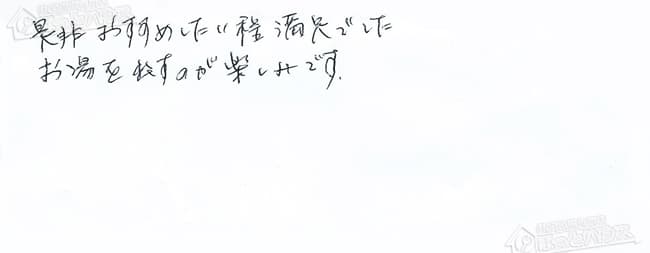 是非おすすめしたい程満足でした
お湯を出すのが楽しみです.